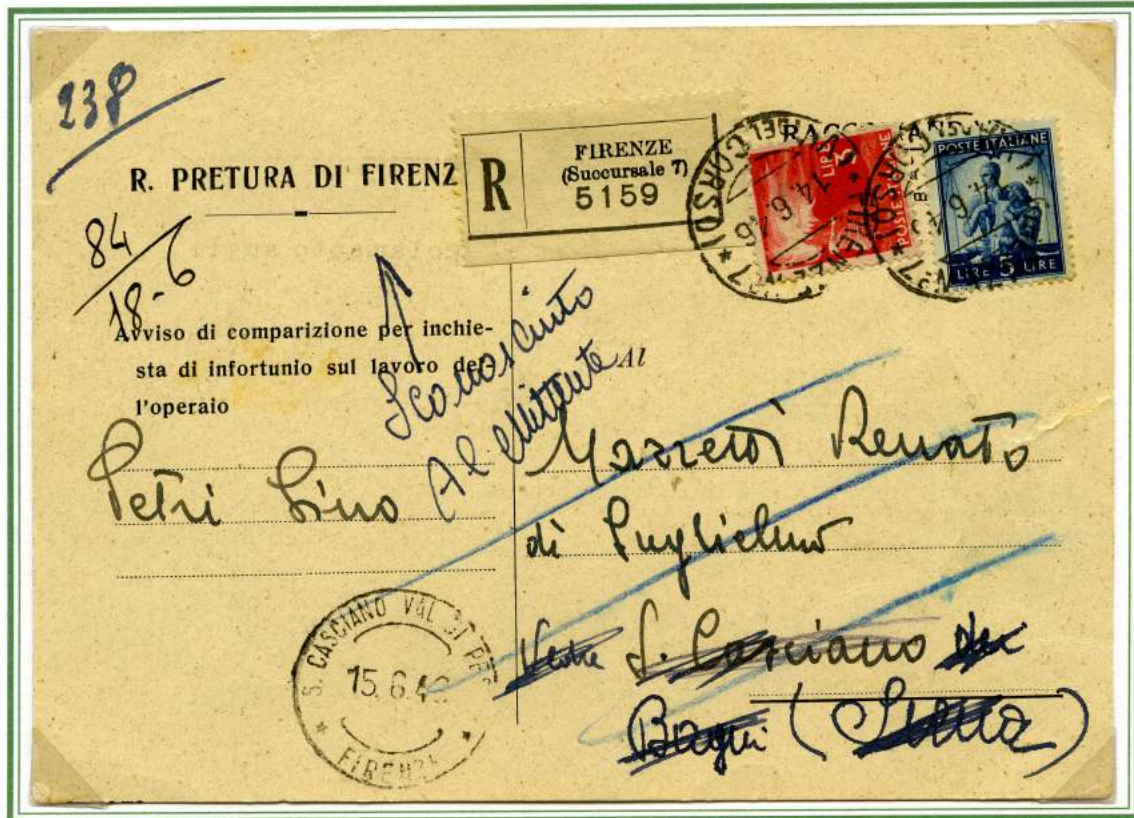 238
R. PRETURA DI FIRENZ
84
18-6
R
FIRENZE
(Succursale 7)
5159
LIRE 3
POSTE
POSTE ITALIANE
LIRE 5 LIRE
14.6.46
Avviso di comparizione per inchie-
sta di infortunio sul lavoro del-
l'operaio
Petri Gino
Sconosciuto
Al Mittente
Al
Mazzetti Renato
di Guglielmo
S. Casciano dei
Bagni (Siena)
S. CASCIANO VAL DI PES
15.6.46
FIRENZE